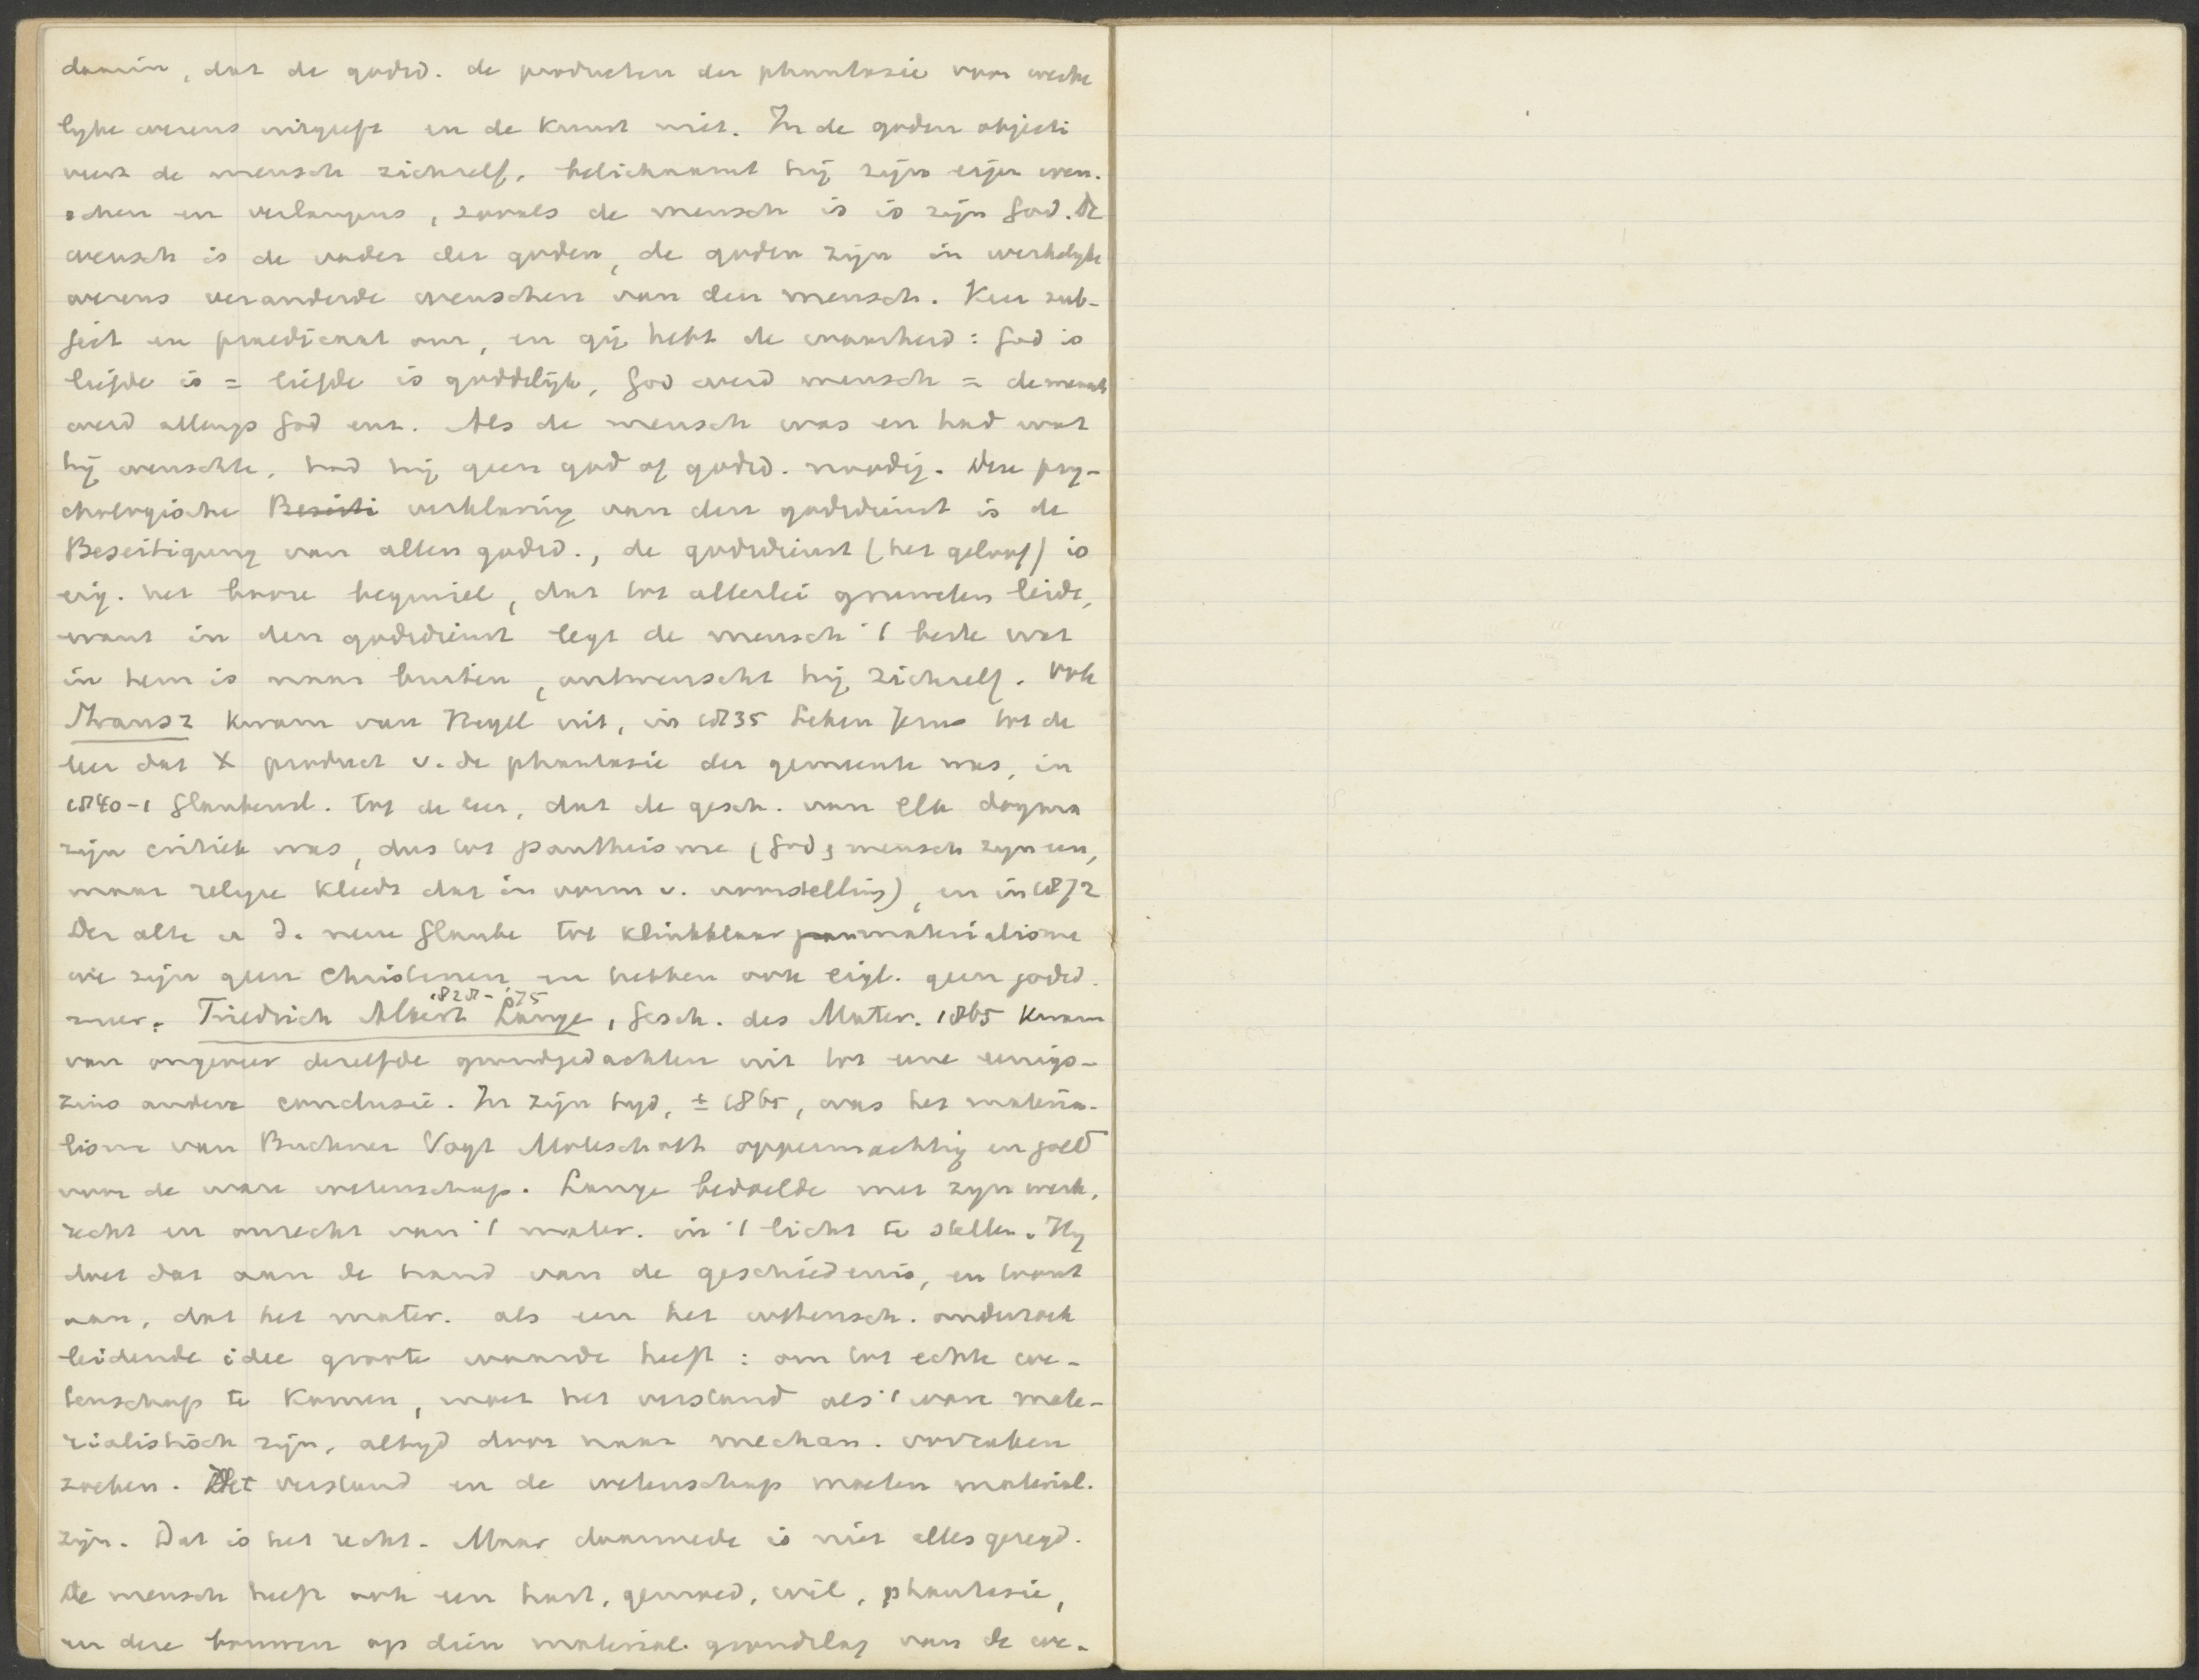 daarin, dat de godsd. de producten der phantasie voor werke
lyke wezens uitgeeft en de kunst niet. In de goden objecti
veert de mensch zichzelf, belichaamt hij zijn eigen wen-
schen en verlangens, zooals de mensch is is zijn God. De
wensch is de vader der goden, de goden zijn in werkelyke
wezens veranderde wenschen van den mensch. Keer sub-
ject en praedicaat om, en gij hebt de waarheid: God is
liefde is = liefde is goddelijk, God werd mensch = de mensch
werd allengs God enz. Als de mensch was en had wat
hij wenschte, had hij geen god of godsd. noodig. Deze psy-
chologische Beseiti verklaring van den godsdienst is de
Beseitigung van allen godsd., de godsdienst (het geloof) is
eig. het booze beginsel, dat tot allerlei gruwelen leidt,
want in den godsdienst legt de mensch 't beste wat
in hem is naar buiten, ontmenscht hij zichzelf. Ook
Strausz kwam van Hegel uit, in 1835 Leben Jesus tot de
leer dat X product v. de phantasie der gemeente was, in
1840-1 Glaubensl. tot de leer, dat de gesch. van elk dogma
zijn critiek was, dus tot pantheisme (God & mensch zyn een,
maar religie kleedt dat in vorm v. voorstelling), en in 1872
Der alte u d. neue Glaube tot klinkklaar pan materialisme
we zijn geen Christenen en hebben ook eigl. geen godsd.
meer. Friedrich Albert Lange, Gesch. des Mater. 1865 kwam
1828-'75
van ongeveer dezelfde grondgedachten uit tot eene eenigs-
zins andere conclusie. In zijn tyd, ± 1865, was het materia-
lisme van Buchner Vogt Moleschott oppermachtig en gold
voor de ware wetenschap. Lange bedoelde met zyn werk,
recht en onrecht van 't mater. in 't licht te stellen. Hy
doet dat aan de hand van de geschiedenis, en toont
aan, dat het mater. als een het wetensch. onderzoek
leidende idee groote waarde heeft: om tot echte we-
tenschap te komen, moet het verstand als 't ware mate-
rialistisch zijn, altyd door naar mechan. oorzaken
zoeken. Het verstand en de wetenschap moeten material.
zijn. Dat is het recht. Maar daarmede is niet alles gezegd.
De mensch heeft ook een hart, gemoed, wil, phantasie,
en deze bouwen op dien material. grondslag van de we-